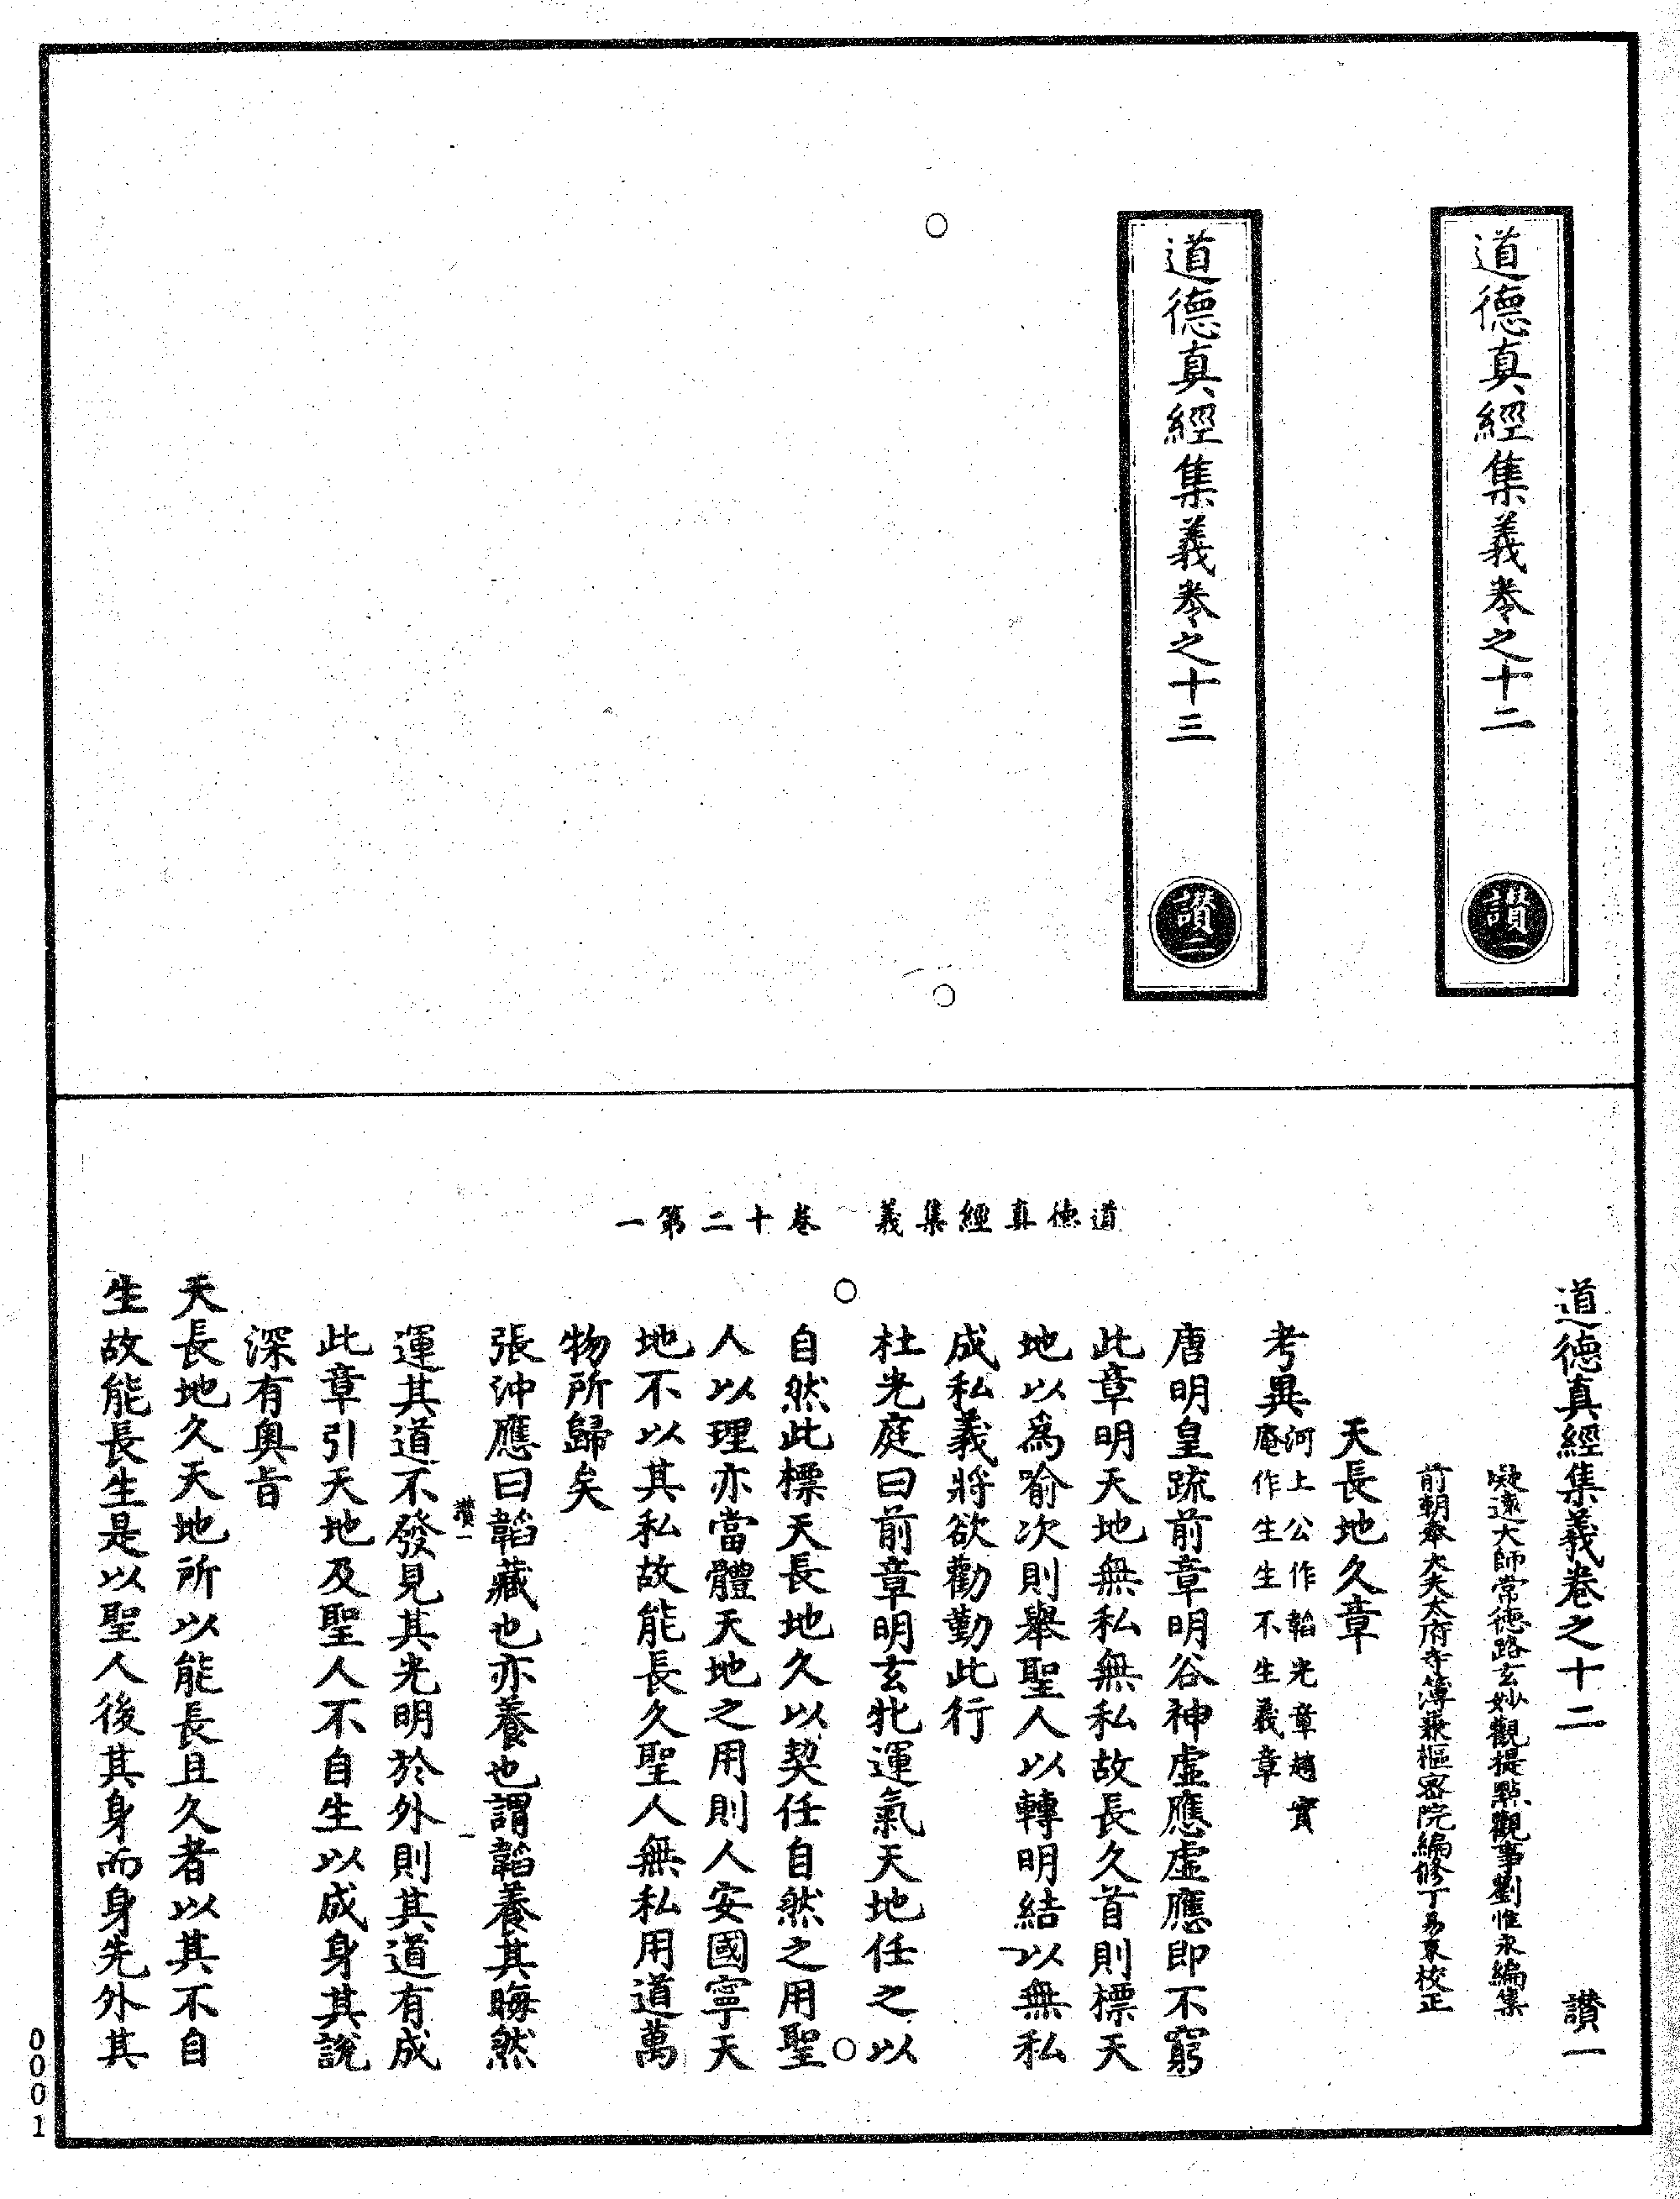 道德真經集義卷之十二
讃一
道德真經集義卷之十三
讃二
道德真經集義 卷十二第一
道德真經集義卷之十二 讃一
凝遠大師常德路玄妙觀提點觀事劉惟永編集
前朝奉大夫太府寺簿兼樞密院編修丁易東校正
天長地久章
考異河上公作韜光章趙實
庵作生生不生義章
唐明皇疏前章明谷神虛應虛應即不窮
此章明天地無私無私故長久首則標天
地以爲喻次則舉聖人以轉明結以無私
成私義將欲勸勤此行
杜光庭曰前章明玄牝運氣天地任之以
自然此標天長地久以契任自然之用聖
人以理亦當體天地之用則人安國寧天
地不以其私故能長久聖人無私用道萬
物所歸矣
張沖應曰韜藏也亦養也謂韜養其晦然
讃一 一
運其道不發見其光明於外則其道有成
此章引天地及聖人不自生以成身其說
深有奧旨
天長地久天地所以能長且久者以其不自
生故能長生是以聖人後其身而身先外其
0001